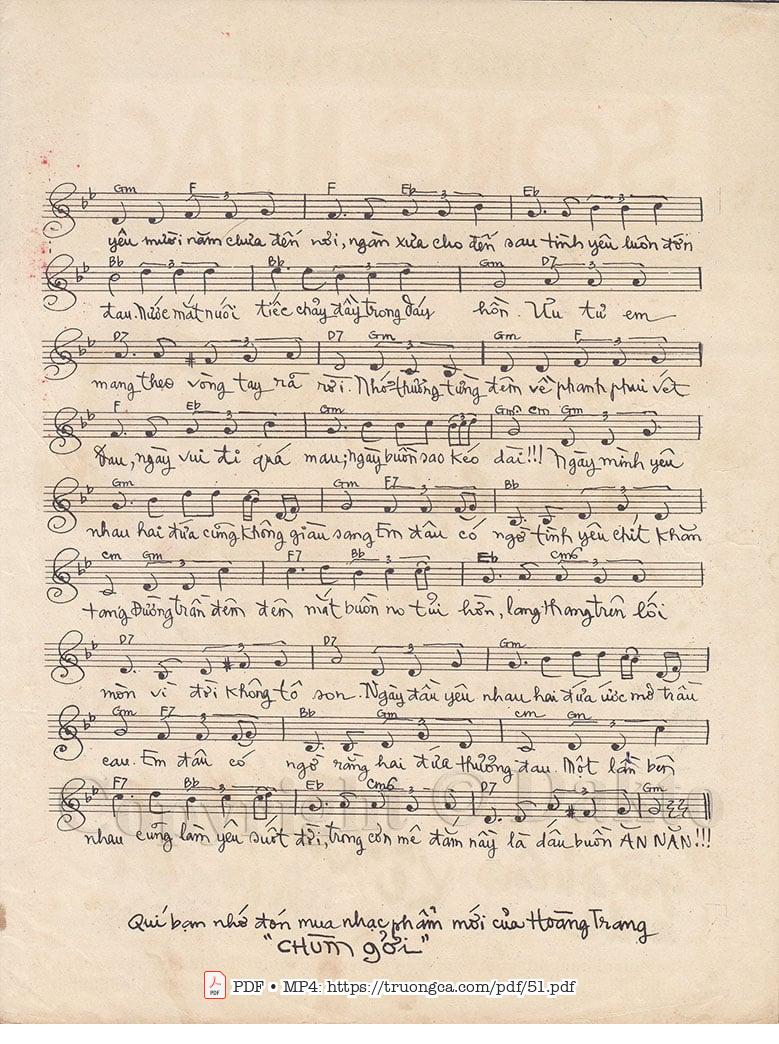 Gm F 3 F Eb 3 Eb 3
yêu mười năm chưa đến nơi, ngàn xưa cho đến sau tình yêu luôn đớn
Bb 3 Bb 3 Gm D7 3
đau. Nước mắt nuối tiếc chảy đầy trong đáy hồn. Ưu tư em
D7 3 D7 Gm 3 Gm F 3
mang theo vòng tay rã rời. Nhớ thương từng đêm về phanh phui vết
F Eb 3 Gm 3 Gm6 Cm Gm 3
Đau, ngày vui đi quá mau; ngày buồn sao kéo dài!!! Ngày mình yêu
Gm 3 Gm F7 3 Bb 3
nhau hai đứa cũng không giàu sang Em đâu có ngờ tình yêu chít khăn
Cm Gm 3 F7 Bb 3 Eb Cm6 3
tang Đường trần đêm đêm mắt buồn no tủi hờn, lang thang trên lối
D7 3 D7 3 Gm 3
mòn vì đời không tô son. Ngày đầu yêu nhau hai đứa ước mơ trầu
Gm F7 3 Bb Gm 3 Cm Gm 3
cau. Em đâu có ngờ rằng hai đứa thương đau. Một lần bên
F7 Bb 3 Eb Cm6 3 D7 3 Gm
nhau cũng làm yêu suốt đời, trong cơn mê đắm này là dấu buồn ĂN NĂN!!!
Quí bạn nhớ đón mua nhạc phẩm mới của Hoàng Trang
"CHÙM gởi"
PDF • MP4: https://truongca.com/pdf/51.pdf